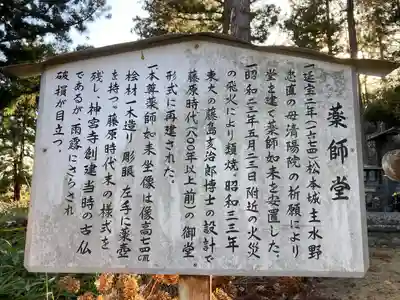 薬師堂
一延宝二年(一六七四)松本城主水野
忠直の母清陽院の祈願により
堂を建て薬師如来を安置した。
一昭和二三年五月二三日附近の火災
の飛火により類焼。昭和三三年
東大の藤島亥治郎博士の設計で
藤原時代(八〇〇年以上前)の御堂
形式に再建された。
一本尊薬師如来坐像は像高七四㎝
桧材一木造り彫眼、左手に薬壺
を持つ。藤原時代末の様式を
残し、神宮寺創建当時の古仏
であるが、雨露にさらされ
破損が目立つ。